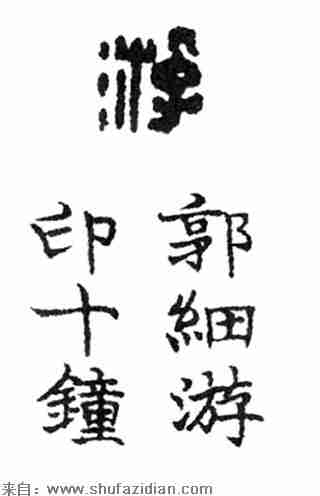 游
郭細游
印十鐘
来自：www.shufazidian.com